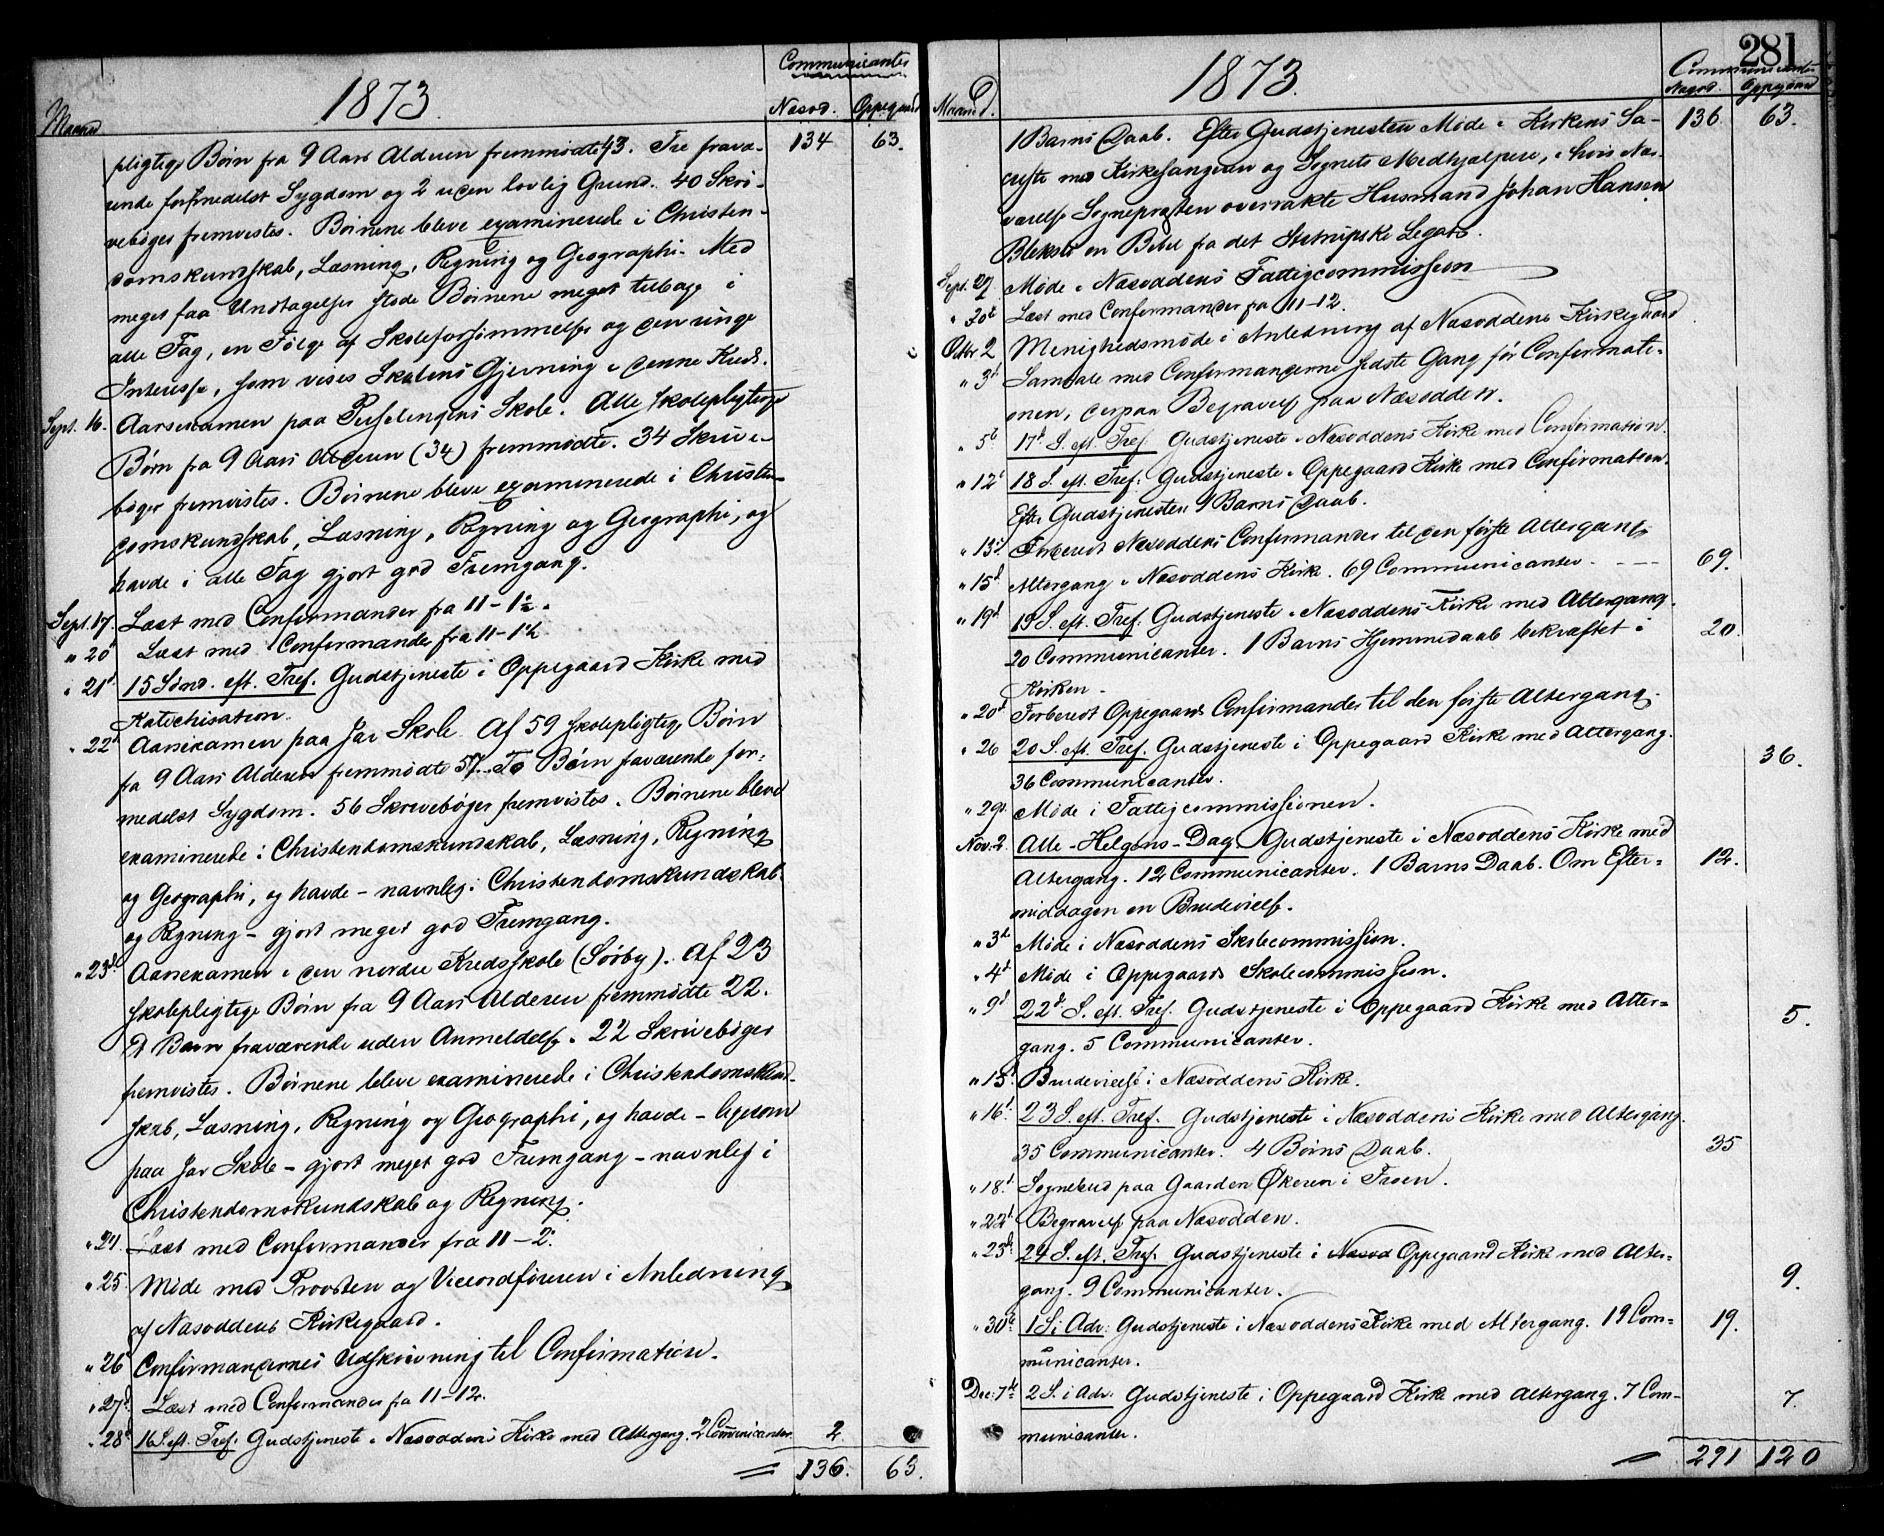 1873.
Communicanter
Maaned
Næsod.
Oppegaard
134
63.
pligtige Børn fra 9 Aars Alderen fremmødte 43. Tre fravæ-
rende formedelst Sygdom og 2 uden lovlig Grund. 40 Skri-
vebøger fremvistes. Børnene bleve examinerede i Christen-
domskundskab, Læsning, Regning og Geographi. Med
meget faa Undtagelser stode Børnene meget tilbage i
alle Fag, en Følge af Skoleforsømmelse og den ringe
Interesse, som vises Skolens Gjerning i denne Kreds.
Sept. 16. Aarsexamen paa Skole. Alle skolepligtige
Børn fra 9 Aars Alderen (34) fremmødte. 34 Skrive-
bøger fremvistes. Børnene bleve examinerede i Christen-
domskundskab, Læsning, Regning og Geographi, og
havde i alle Fag gjort god Fremgang.
Sept. 17. Læst med Confirmander fra 11-1½.
" 20 Læst med Confirmander fra 11-1½
" 21d 15 Sønd. eft. Tref. Gudstjeneste i Oppegaard Kirke med
Katechisation.
" 22d Aarsexamen paa Jar Skole. Af 59 skolepligtige Børn
fra 9 Aars Alderen fremmødte 57. To Børn fraværende for-
medelst Sygdom. 56 Skrivebøger fremvistes. Børnene bleve
examinerede i Christendomskundskab, Læsning, Regning
og Geographi, og havde - navnlig i Christendomskundskab
og Regning - gjort meget god Fremgang.
" 23d Aarsexamen i den nordre Kredsskole (Sørby). Af 23
skolepligtige Børn fra 9 Aars Alderen fremmødte 22.
1 Barn fraværende uden Anmeldelse. 22 Skrivebøger
fremvistes. Børnene bleve examinerede i Christendomskund-
skab, Læsning, Regning og Geographi, og havde - ligesom
paa Jar Skole - gjort meget god Fremgang - navnlig i
Christendomskundskab og Regning.
" 24. Læst med Confirmander fra 11-2.
" 25. Møde med Provsten og Viceordføreren i Anledning
af Næsoddens Kirkegaard.
" 26 Confirmandernes Udskrivning til Confirmation.
" 27d Læst med Confirmander fra 11-12.
" 28d 16 S. eft. Tref. Gudstjeneste i Næsoddens Kirke med Altergang. 2 Communicanter. 2.
136. 63.
281
1873.
Communicanter
Maaned.
Næsod.
Oppegaard
136.
63.
1 Barns Daab. Efter Gudstjenesten Møde i Kirkens Sa-
cristi med Kirkesangeren og Sognets Medhjælpere, i hvis Nær-
værelse Sognepræsten overrakte Husmand Johan Hansen
en Bibel fra det Legat.
Sept. 29 Møde i Næsoddens Fattigcommission
" 30d Læst med Confirmander fra 11-12.
Octbr 2 Menighedsmøde i Anledning af Næsoddens Kirkegaard
" 3d Samtale med Confirmanderne sidste Gang før Confirmatio-
nen, derpaa Begravelse paa Næsodden.
" 5d 17d S. eft. Tref. Gudstjeneste i Næsoddens Kirke med Confirmation.
" 12d 18 S. eft. Tref. Gudstjeneste i Oppegaard Kirke med Confirmation.
Efter Gudstjenesten 1 Barns Daab.
" 13d Forberedt Næsoddens Confirmander til den første Altergang
" 15d Altergang i Næsoddens Kirke. 69 Communicanter. 69.
" 19d 19 S. eft. Tref. Gudstjeneste i Næsoddens Kirke med Altergang.
20 Communicanter. 1 Barns Hjemmedaab bekræftet i 20.
Kirken.
" 20d Forberedt Oppegaards Confirmander til den første Altergang.
" 26 20 S. eft. Tref. Gudstjeneste i Oppegaard Kirke med Altergang.
36 Communicanter. 36.
" 29d Møde i Fattigcommissionen.
Nov. 2. Alle-Helgens-Dag Gudstjeneste i Næsoddens Kirke med
Altergang. 12 Communicanter. 1 Barns Daab. Om Efter- 12.
middagen en Brudevielse.
" 3d Møde i Næsoddens Skolecommission.
" 4d Møde i Oppegaards Skolecommission.
" 9d 22d S. eft. Tref. Gudstjeneste i Oppegaard Kirke med Alter-
gang. 5 Communicanter. 5.
" 15d Brudevielse i Næsoddens Kirke.
" 16d 23 S. eft. Tref. Gudstjeneste i Næsoddens Kirke med Altergang.
35 Communicanter. 4 Børns Daab. 35
" 18d Sognebud paa Gaarden Økeren i Froen.
" 22d Begravelse paa Næsodden.
" 23d 24 S. eft. Tref. Gudstjeneste i Næsod Oppegaard Kirke med Alter-
gang. 9 Communicanter. 9.
" 30d 1 S. i Adv. Gudstjeneste i Næsoddens Kirke med Altergang. 19 Com- 19.
municanter.
Dec. 7d 2 S. i Adv. Gudstjeneste i Oppegaard Kirke med Altergang. 7 Com- 7.
municanter.
291 120